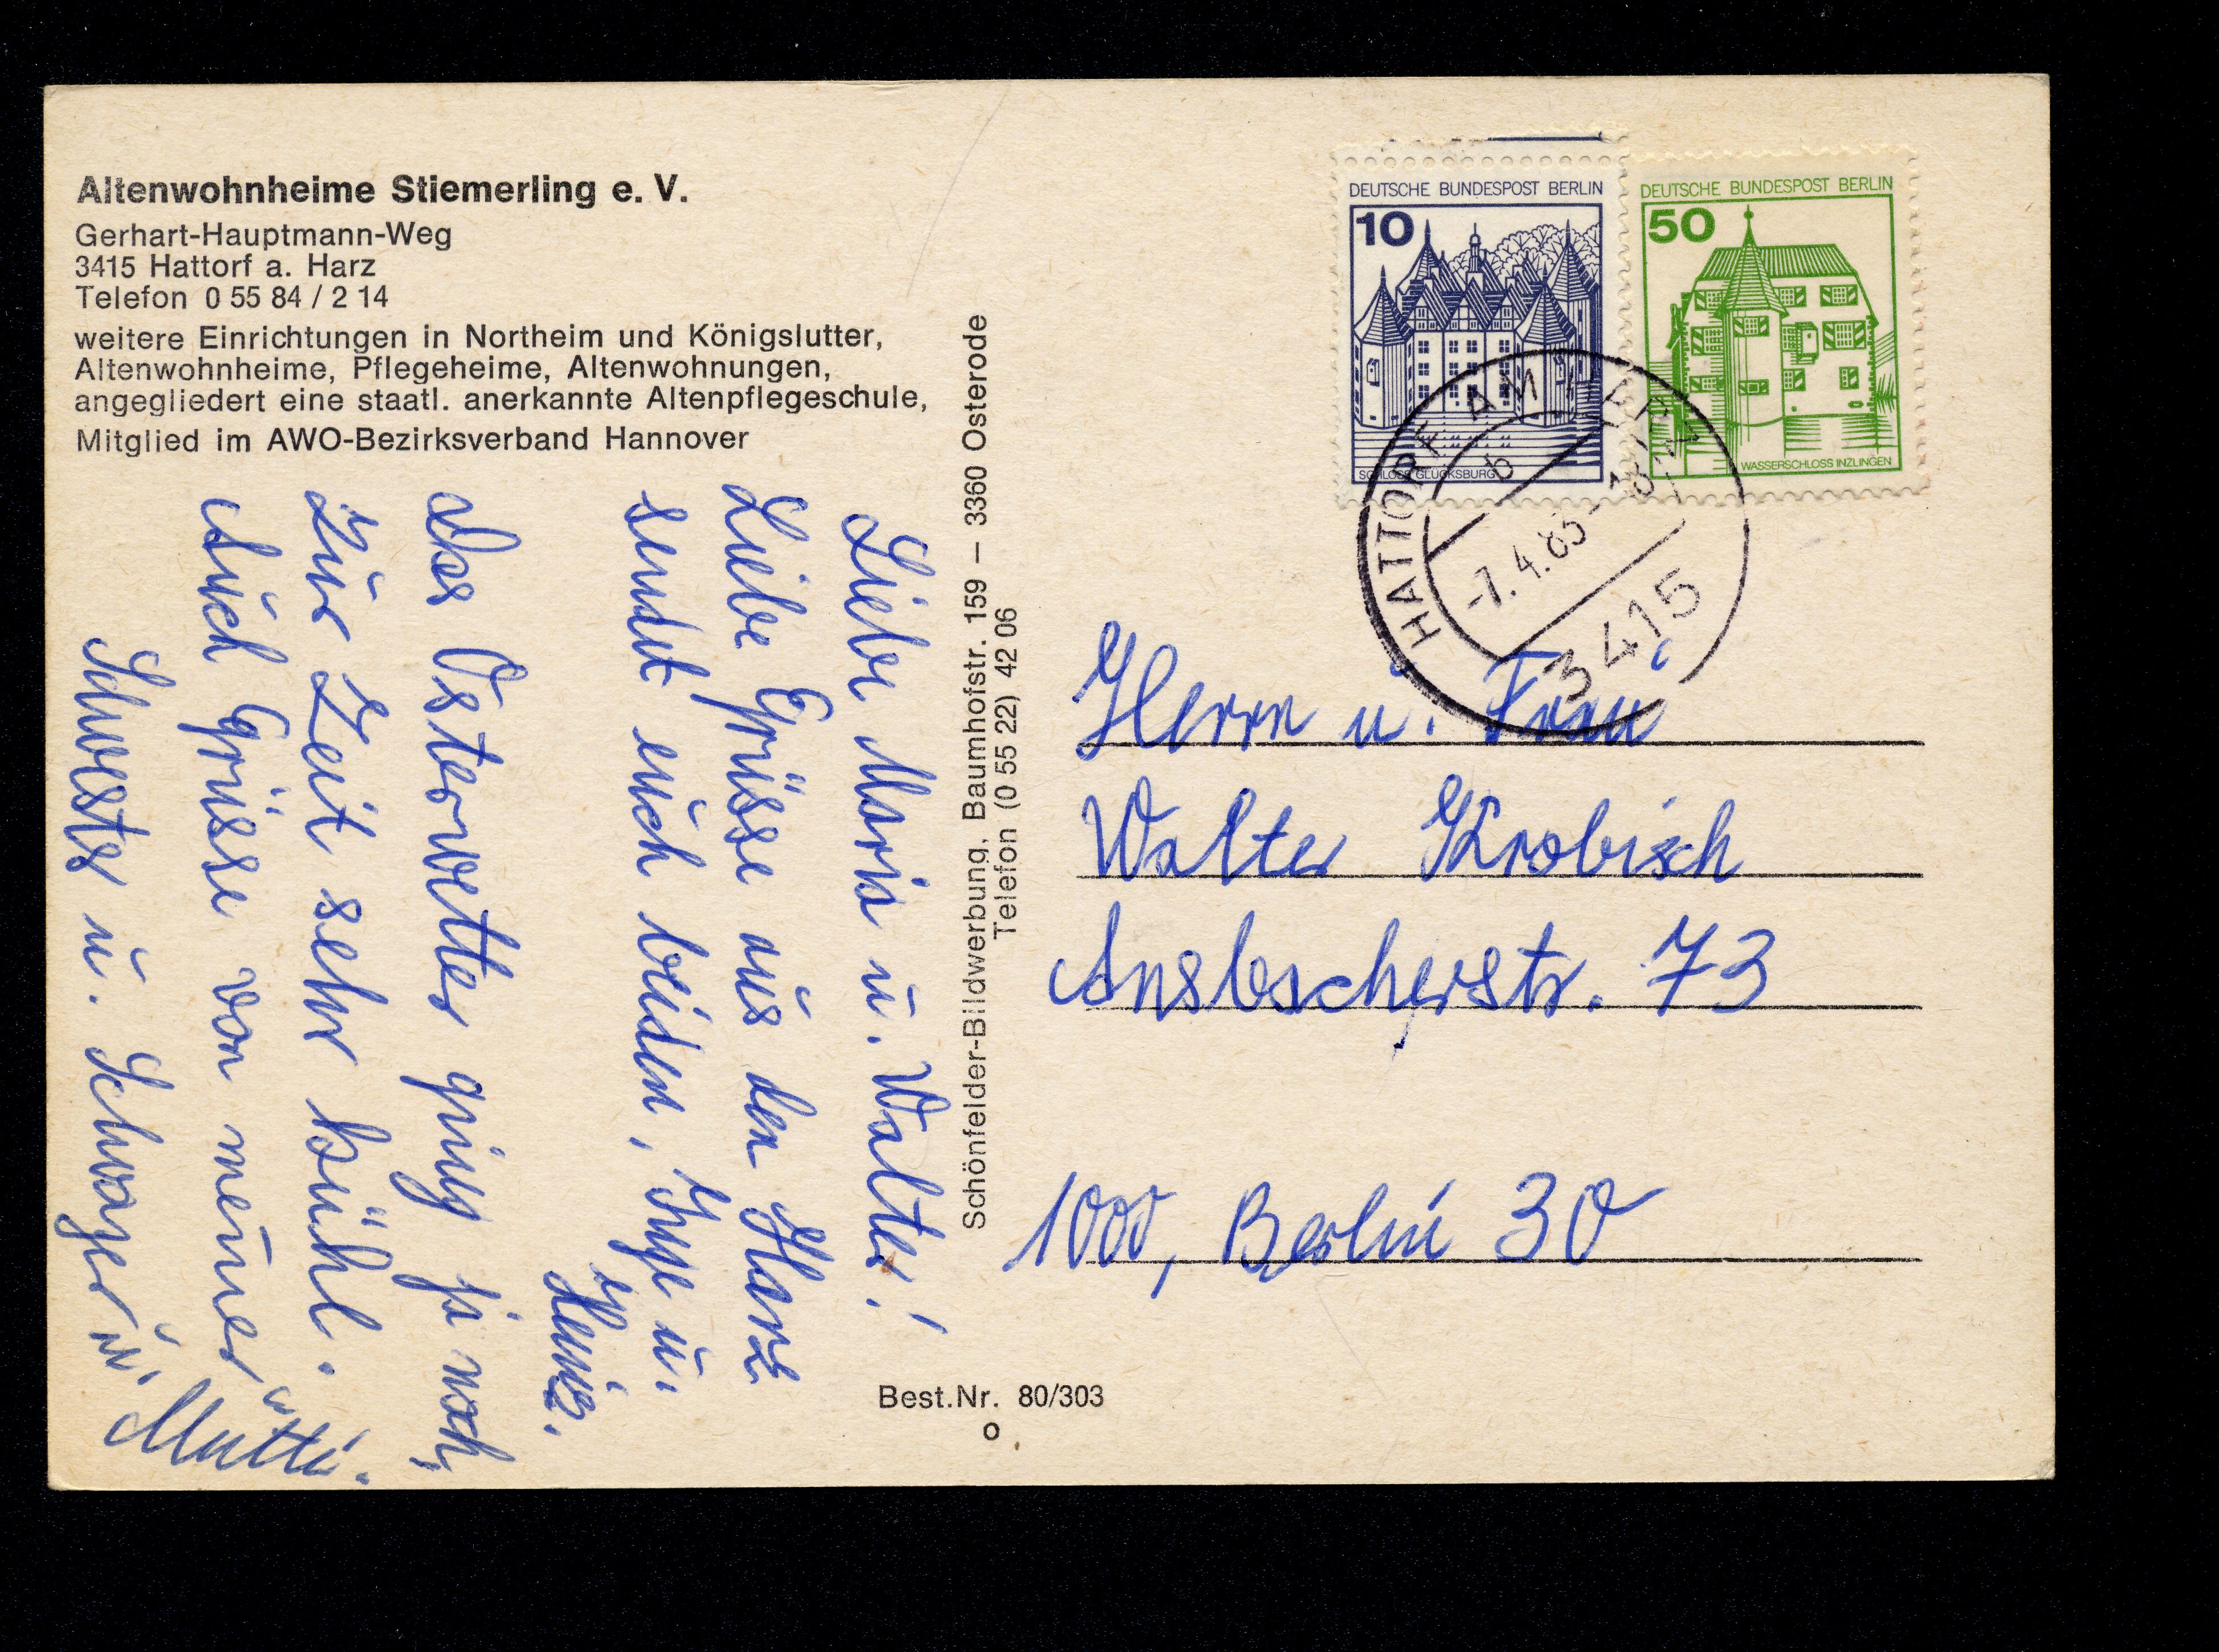 Altenwohnheime Stiemerling e. V.
Gerhart-Hauptmann-Weg
3415 Hattorf a. Harz
Telefon 0 55 84 / 2 14
weitere Einrichtungen in Northeim und Königslutter,
Altenwohnheime, Pflegeheime, Altenwohnungen,
angegliedert eine staatl. anerkannte Altenpflegeschule,
Mitglied im AWO-Bezirksverband Hannover
Liebe Maria u. Walter!
Liebe Grüsse aus den Harz
sendet euch beiden, Inge u.
Heinz.
Das Osterwetter ging ja noch,
zur Zeit sehr kühl.
Auch Grüsse von meiner
Schwester u. Schwager u.
Mutti.
Schönfelder-Bildwerbung, Baumhofstr. 159 – 3360 Osterode
Telefon (0 55 22) 42 06
Best.Nr. 80/303
DEUTSCHE BUNDESPOST BERLIN
10
SCHLOSS GLÜCKSBURG
DEUTSCHE BUNDESPOST BERLIN
50
WASSERSCHLOSS INZLINGEN
HATTORF AM HARZ
b
-7.4.83
3415
Herrn u. Frau
Walter Krobisch
Ansbacherstr. 73
1000, Berlin 30